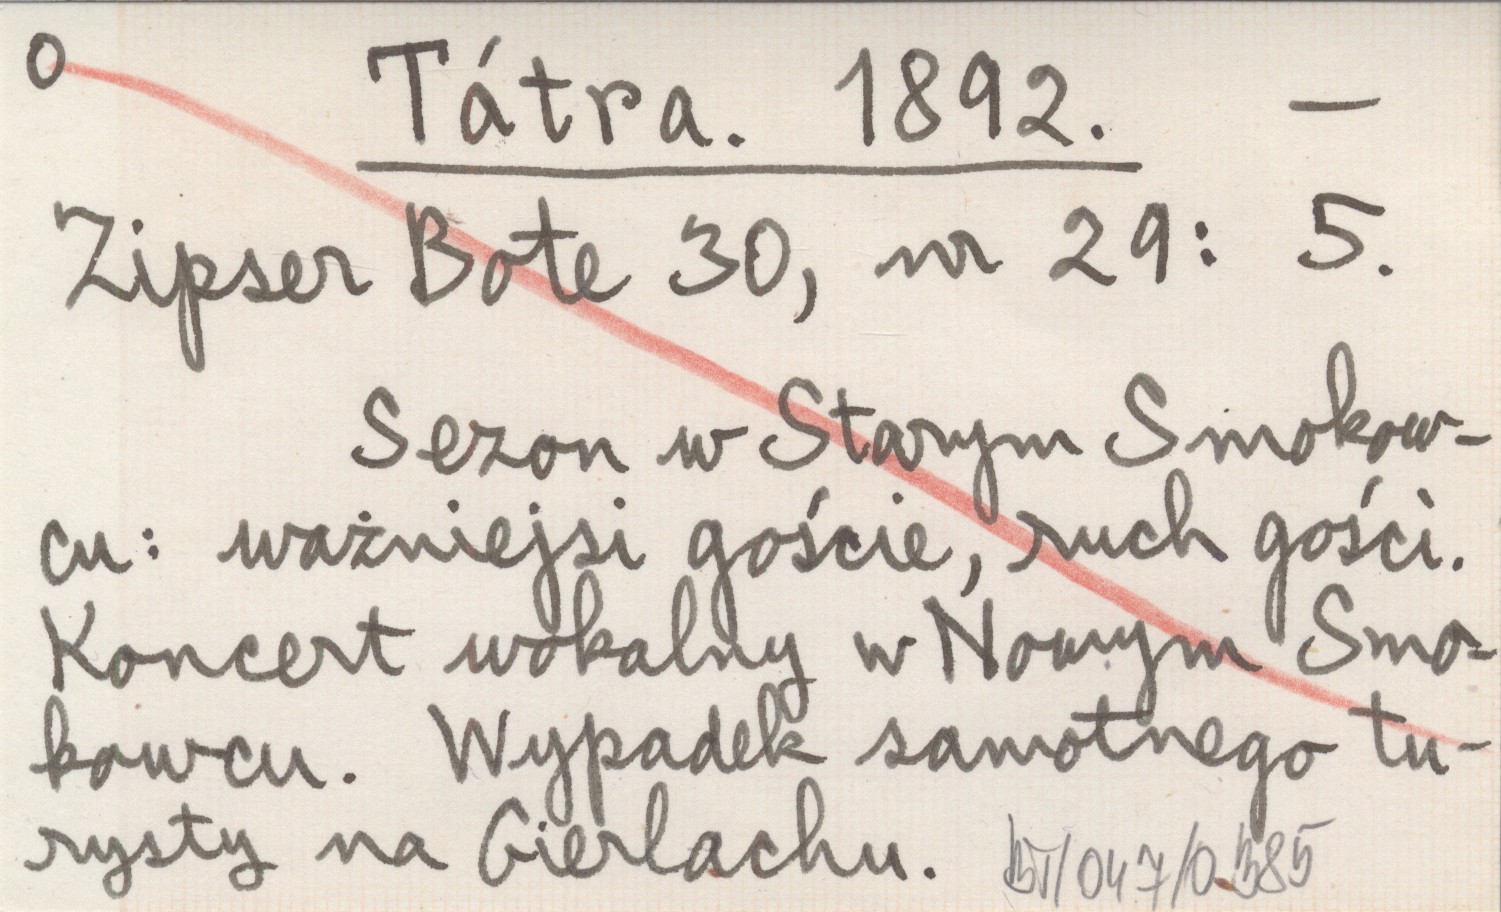 0 Tátra. 1892. —
Zipser Bote 30, nr 29: 5.
Sezon w Starym Smokow-
cu: ważniejsi goście, ruch gości.
Koncert wokalny w Nowym Smo-
kowcu. Wypadek samotnego tu-
rysty na Gierlachu.
BT/047/0.385